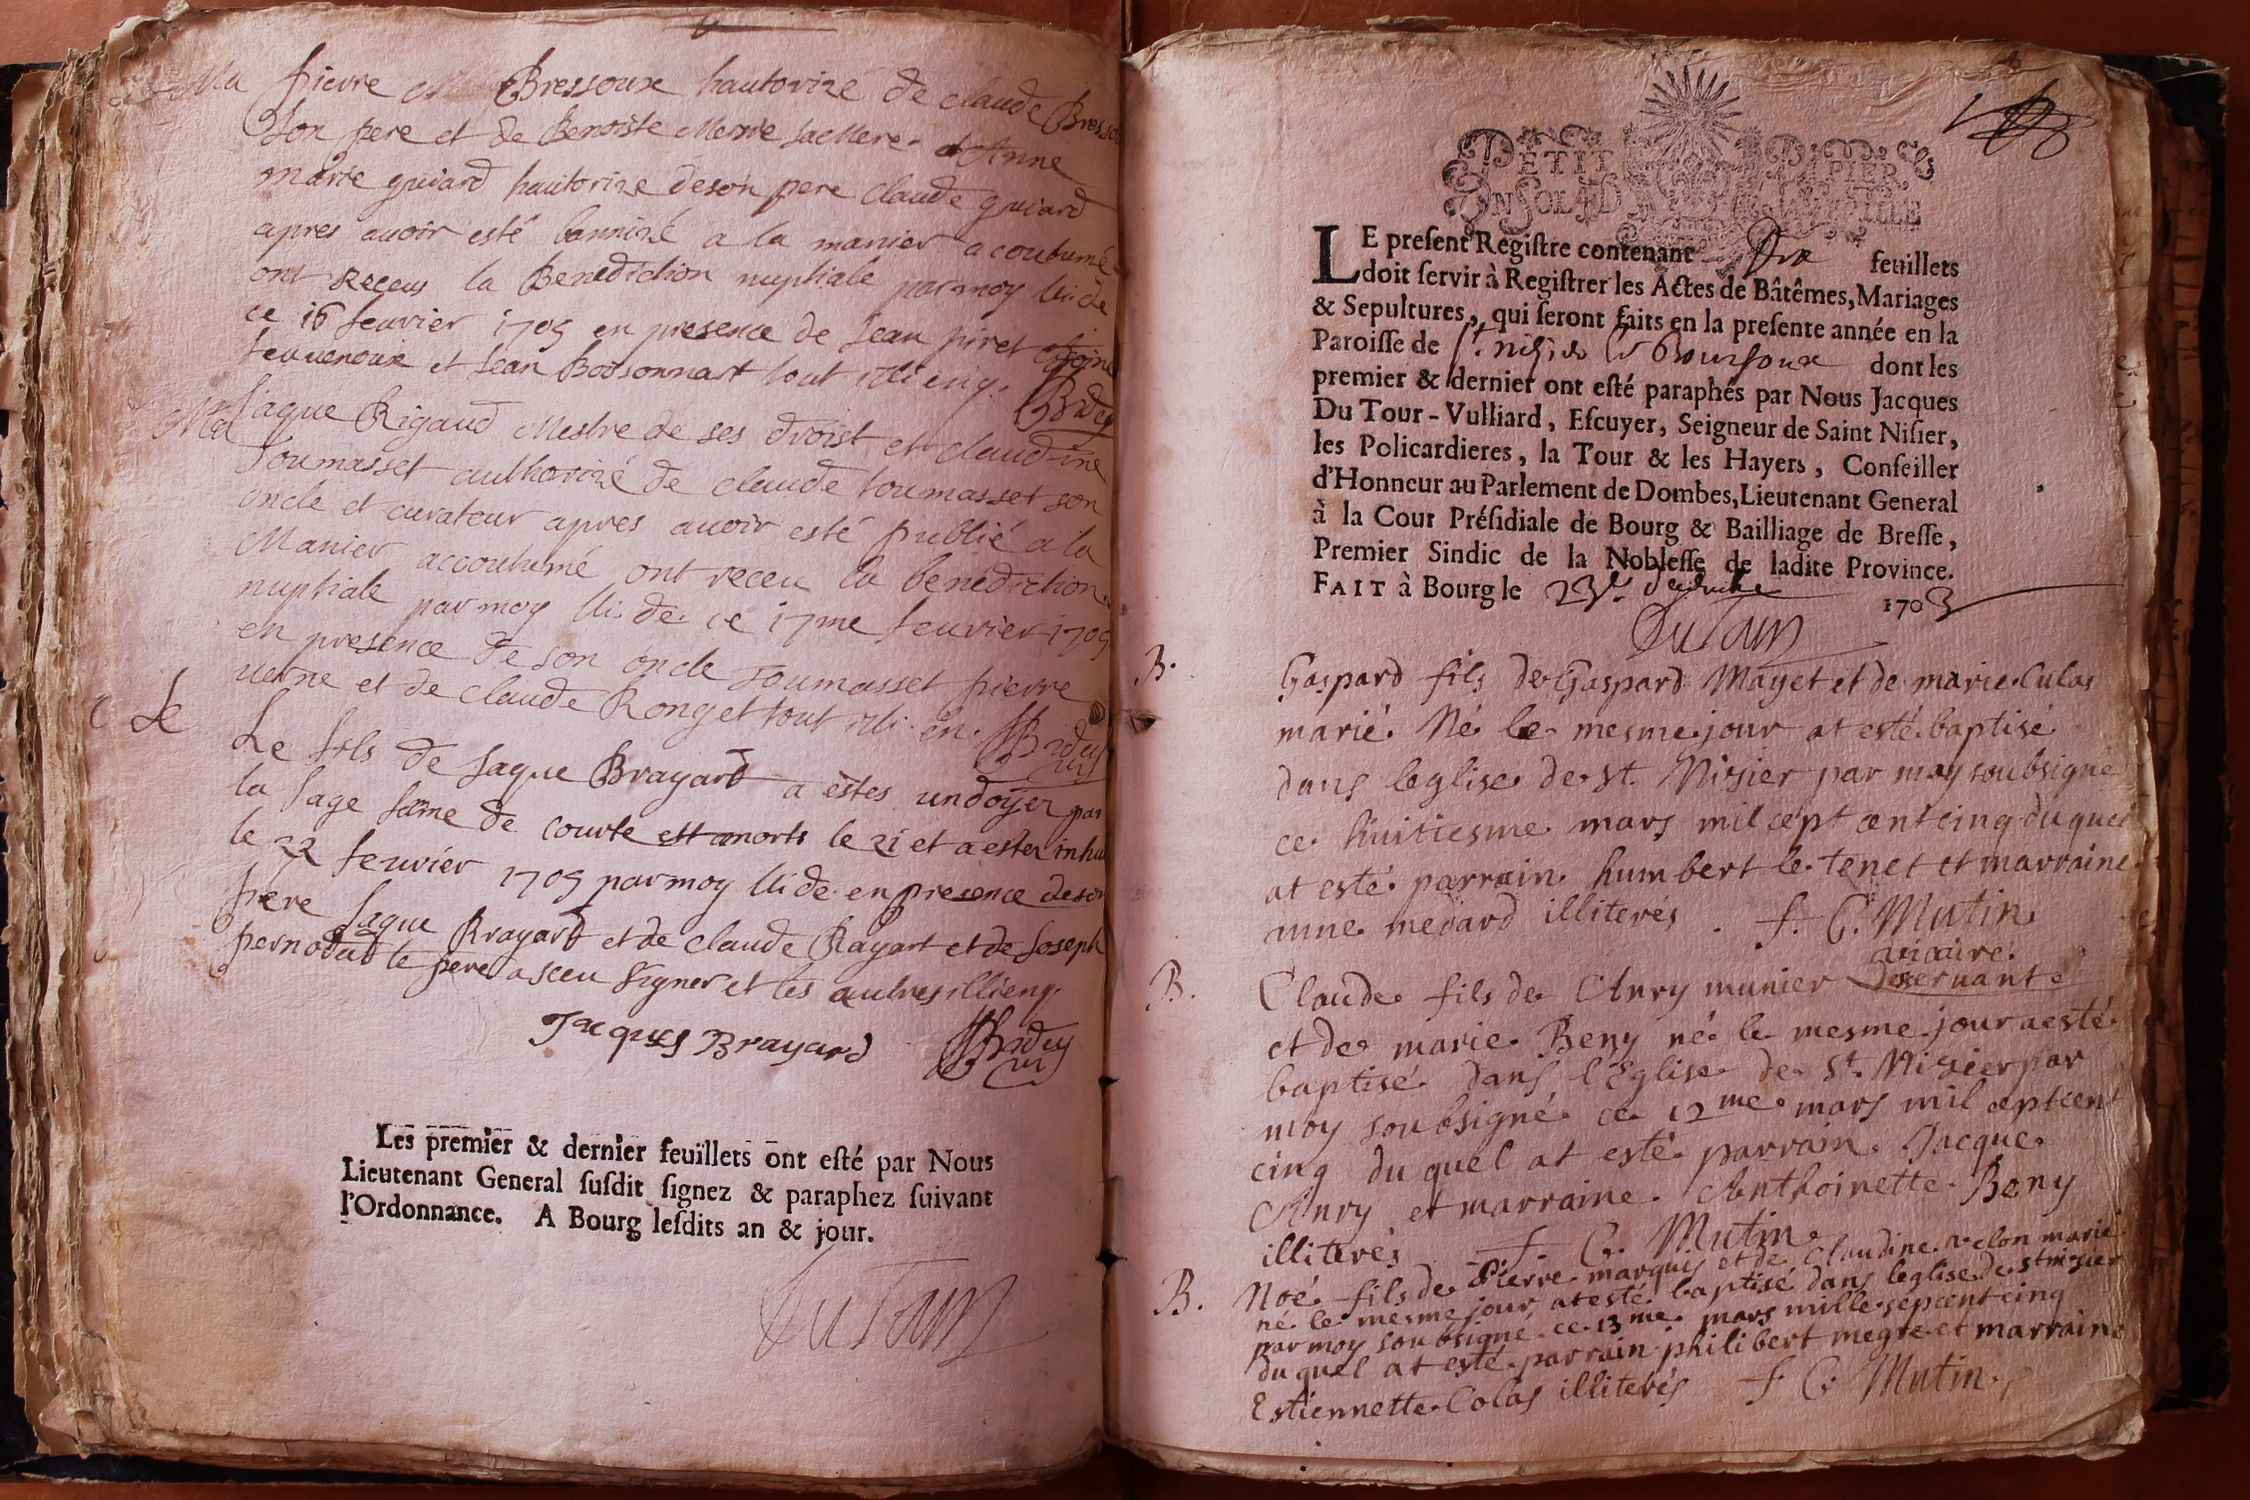 Ma pierre Bressoux hautorizé de claude Bresso
son pere et de Benoiste Merne sa Mere. et Anne
marie guiard hautorize de son pere claude guiard
apres auoir esté bannizé a la manier acoutumé
ont Receus la Benediction nuptiale par moy
ce 16 feuvrier 1705 en presence de Jean piret
et Jean Boosonnart tout illi enq.
Ma Jaque Rigaud Mestre de ses droist et claudine
Toumasset authorizé de claude toumasset son
oncle et curateur apres auoir esté publié a la
Manier accoutumé ont receu la benediction
nuptiale par moy ce 17me feuvrier 1705
en presence de son oncle Toumasset pierre
uerne et de claude Ronget tout illi en.
Le Le fils de Jaque Brayard a estes undoyer par
la sage fame de courte est morts le 21 et a ester inhu
le 22 feuvrier 1705 par moy en presence de son
pere Jaque Brayard et de claude Rayart et de Joseph
pernodat le pere a sceu signer et les autres illi enq.
Jacques Brayard
Les premier & dernier feuillets ont esté par Nous
Lieutenant General susdit signez & paraphez suivant
l'Ordonnance. A Bourg lesdits an & jour.
PETIT PAPIER
UN SOL LA FEUILLE
LE present Registre contenant Dix feuillets
doit servir à Registrer les Actes de Bâtêmes, Mariages
& Sepultures, qui seront faits en la presente année en la
Paroisse de dont les
premier & dernier ont esté paraphés par Nous Jacques
Du Tour-Vulliard, Escuyer, Seigneur de Saint Nisier,
les Policardieres, la Tour & les Hayers, Conseiller
d'Honneur au Parlement de Dombes, Lieutenant General
à la Cour Présidiale de Bourg & Bailliage de Bresse,
Premier Sindic de la Noblesse de ladite Province.
FAIT à Bourg le 23e 1703
B. Gaspard fils de Gaspard Mayet et de marie Culas
marié. Né le mesme jour at esté baptisé
dans leglise de St. Nisier par moy soubsigné
ce huitiesme mars mil cept cent cinq du quel
at esté parrain humbert le tenet et marraine
nne medard illiterés. f. C. Mutin
uicaire
deseruant
B. Claude fils de Anry munier
et de marie Beny né le mesme jour a esté
baptisé dans l'Eglise de St. Nisier par
moy soubsigné ce 12me mars mil cept cent
cinq du quel at esté parrain Jacque
Anry et marraine Anthoinette Beny
illiterés f. C. Mutin
B. Noé fils de Pierre marquis et de Claudine velon marié
né le mesme jour at esté baptisé dans leglise de st nisier
par moy soubsigné ce 13me mars mille sepcent cinq
du quel at esté parrain philibert megre et marraine
Estiennette Colas illiterés f C. Mutin